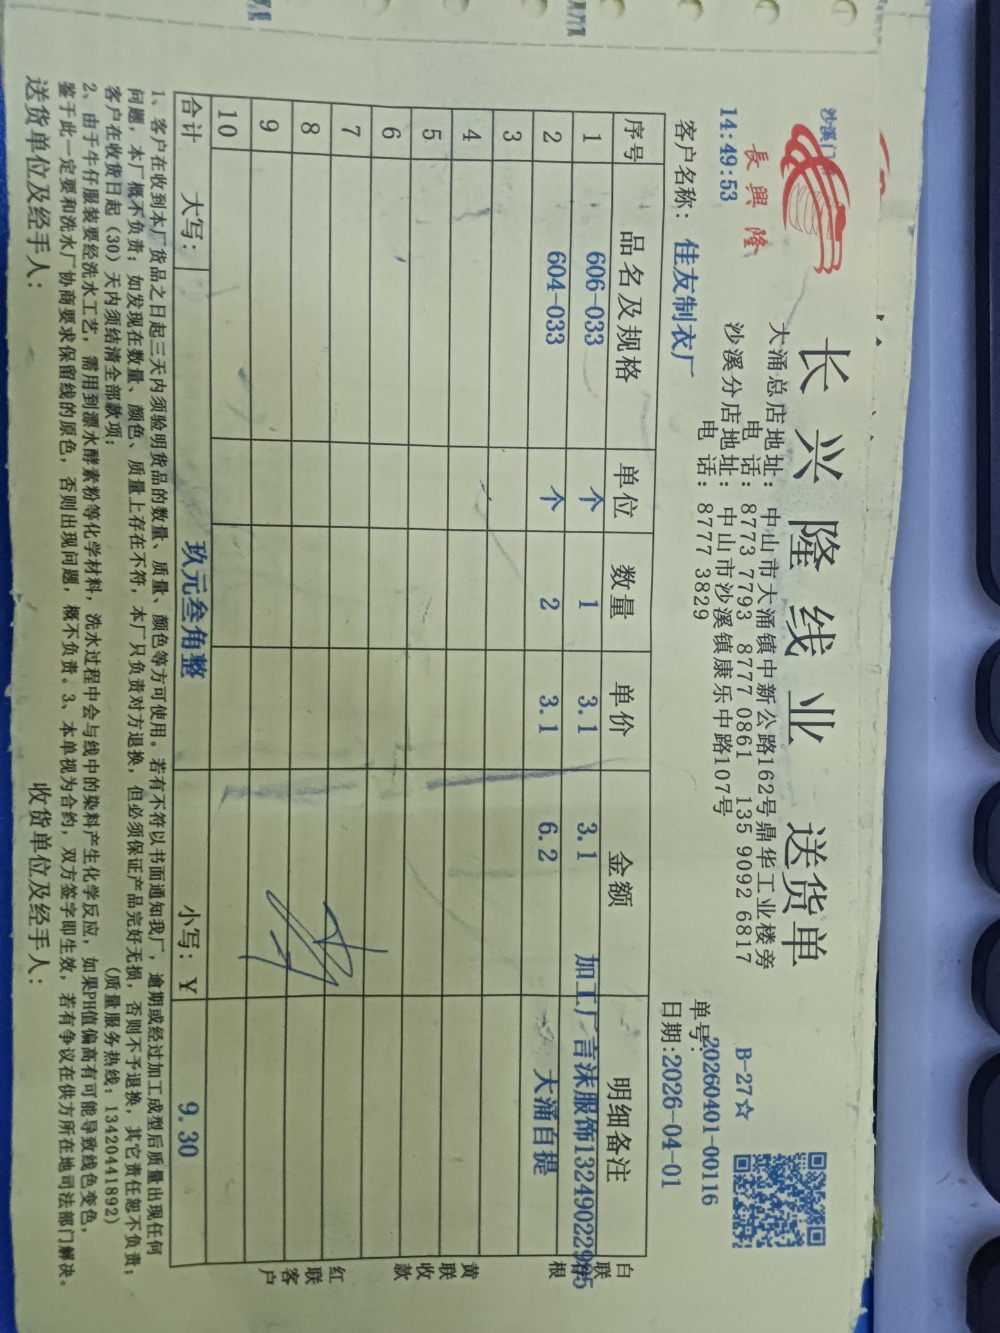 沙溪门
長興隆
14:49:53
长兴隆线业 送货单
大涌总店地址: 中山市大涌镇中新公路162号鼎华工业楼旁
电 话: 8773 7793 8777 0861 135 9092 6817
沙溪分店地址: 中山市沙溪镇康乐中路107号
电 话: 8777 3829
B-27☆
单号:20260401-00116
客户名称: 佳友制衣厂
日期:2026-04-01
序号 品名及规格 单位 数量 单价 金额 明细备注
1 606-033 个 1 3.1 3.1 加工厂言沫服饰13249022995
2 604-033 个 2 3.1 6.2 大涌自提
3
4
5
6
7
8
9
10
合计 大写: 玖元叁角整 小写: ¥ 9.30
白联
根
黄联收款
红联客户
1、客户在收到本厂货品之日起三天内须验明货品的数量、质量、颜色等方可使用。若有不符以书面通知我厂，逾期或经过加工成型后质量出现任何
问题，本厂概不负责；如发现在数量、颜色、质量上存在不符，本厂只负责对方退换，但必须保证产品完好无损，否则不予退换，其它责任恕不负责；
客户在收货日起（30）天内须结清全部款项； （质量服务热线：13420441892）
2、由于牛仔服装要经洗水工艺，需用到漂水酵素粉等化学材料，洗水过程中会与线中的染料产生化学反应，如果PH值偏高有可能导致线色变色，
鉴于此一定要和洗水厂协商要求保留线的原色，否则出现问题，概不负责。3、本单视为合约，双方签字即生效，若有争议在供方所在地司法部门解决。
送货单位及经手人: 收货单位及经手人: